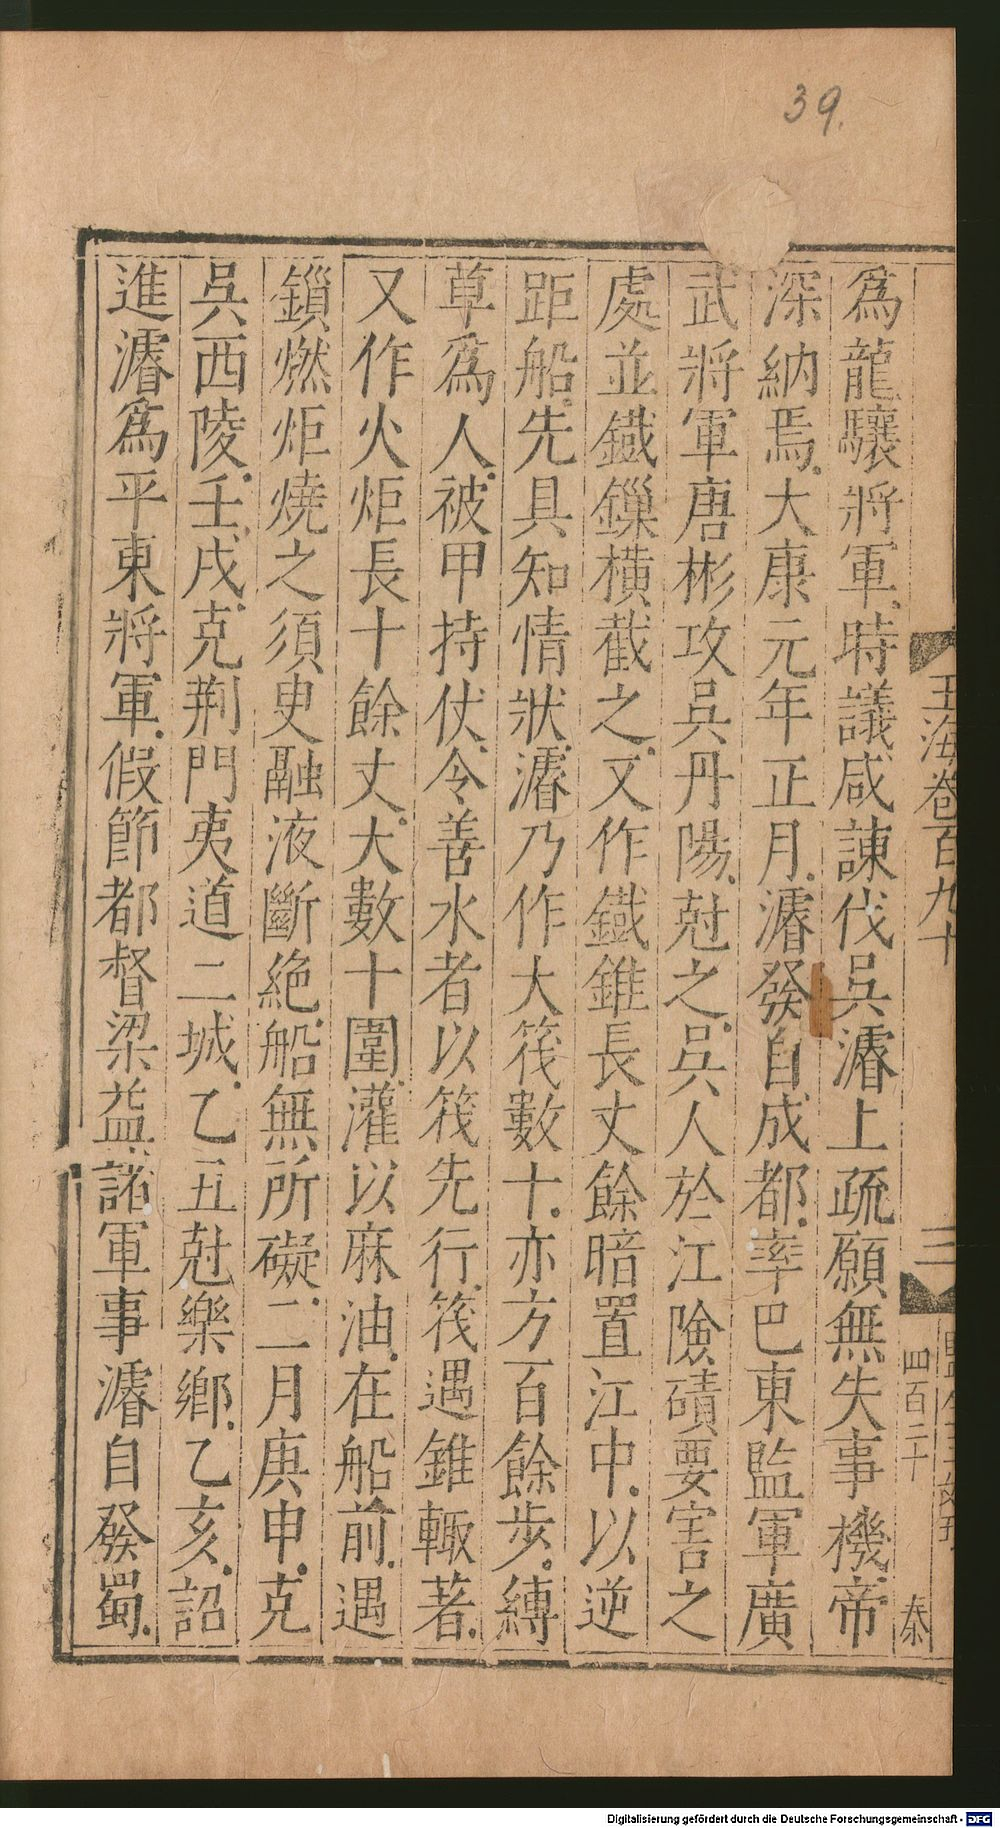 39.
玉海卷百九十
三
四百二十
泰
爲龍驤將軍時議咸諫伐吳濬上疏願無失事機帝
深納焉大康元年正月濬發自成都率巴東監軍廣
武將軍唐彬攻吳丹陽尅之吳人於江險磧要害之
處並鐵鏁橫截之又作鐵錐長丈餘暗置江中以逆
距船先具知情狀濬乃作大筏數十亦方百餘步縛
草爲人被甲持仗令善水者以筏先行筏遇錐輙著
又作火炬長十餘丈大數十圍灌以麻油在船前遇
鎖燃炬燒之須臾融液斷絶船無所礙二月庚申克
吳西陵壬戌克荆門夷道二城乙丑尅樂鄉乙亥詔
進濬爲平東將軍假節都督梁益諸軍事濬自發蜀
Digitalisierung gefördert durch die Deutsche Forschungsgemeinschaft - DFG